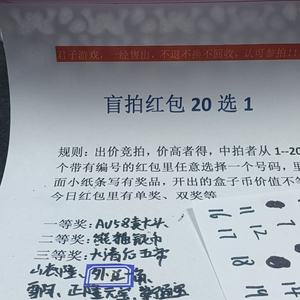 君子游戏，一经售出，不退不换不回收，认可参拍！！
盲拍红包 20 选 1
规则：出价竞拍，价高者得，中拍者从 1--20
个带有编号的红包里任意选择一个号码，里
面小纸条写有奖品，开出的盒子币价值不等
今日红包里有单奖、双奖等
一等奖：AU58黄大头
二等奖：熊猫银币
三等奖：大清
外正
11
16
17
12
18
14
19